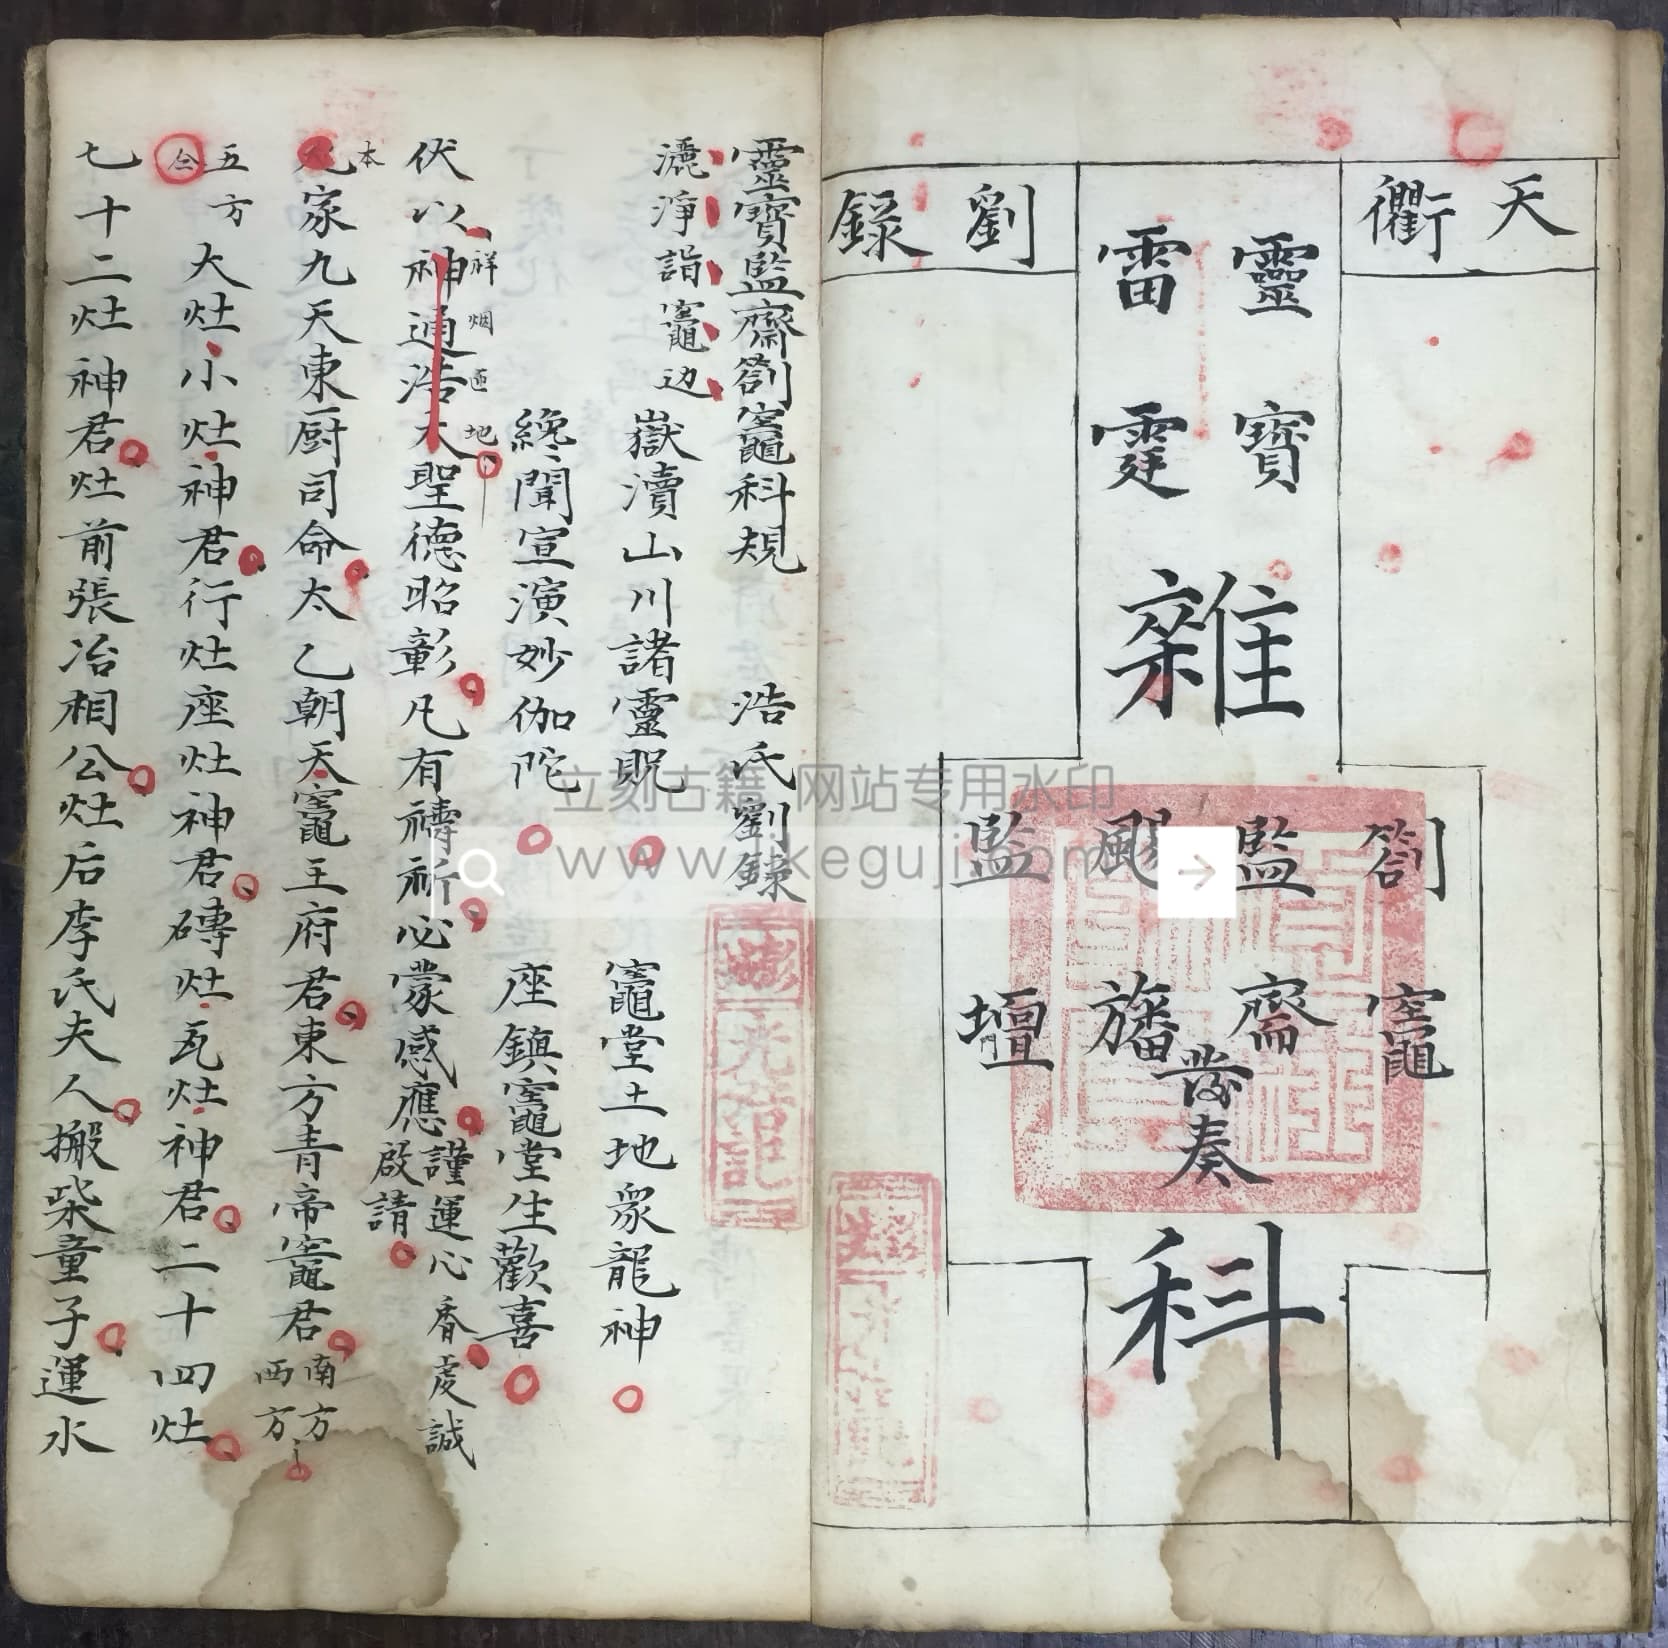 天衢
靈寶
雷霆
雜
劉錄
劄竈
監齋
颺旛
監壇
發奏
科
靈寶監齋劄竈科規 浩氏劉錬
灑淨詣竈边 嶽瀆山川諸靈貺 竈堂土地眾龍神
纔聞宣演妙伽陀 座鎮竈堂生歡喜
伏以神通浩大聖德昭彰凡有禱祈必蒙感應謹運心香虔誠啟請
祥烟遍地
本家九天東厨司命太乙朝天竈王府君東方青帝竈君南方西方
五方大灶小灶神君行灶座灶神君磚灶瓦灶神君二十四灶
七十二灶神君灶前張冶相公灶后李氏夫人搬柴童子運水
立刻古籍 网站专用水印
www.likeguji.com